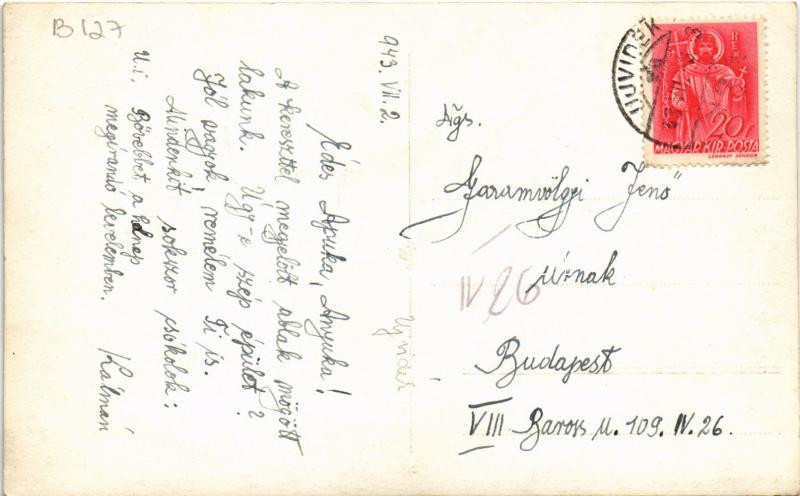 B127
943. VII. 2.
Édes Apuka, Anyuka!
A kereszttel megjelölt ablak mögött
lakunk. Ugy-e szép épület?
Jól vagyok, remélem Ti is.
Mindenkit sokszor csókolok:
Kálmán
U.i. Bővebbet a holnap
megirandó levelemben.
Ujvidék
UJVIDÉK
REX
20f
MAGYAR KIR. POSTA
LÉGRÁDY SÁNDOR
Ngs.
Garamvölgyi Jenő
úrnak
IV 26
Budapest
VIII Baross u. 109. IV. 26.